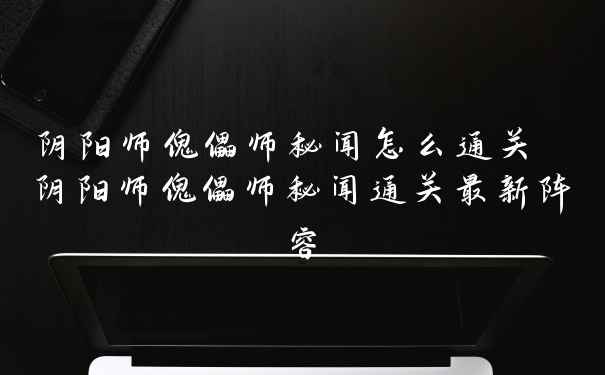 阴阳师傀儡师秘闻怎么通关
阴阳师傀儡师秘闻通关最新阵
容